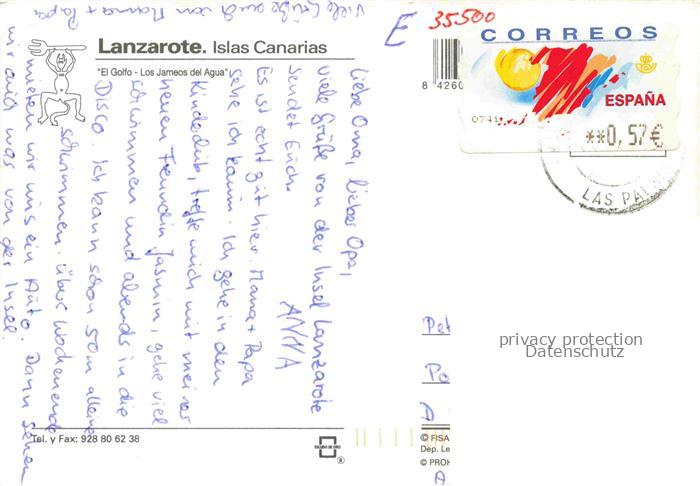 Viele Grüße auch von Mama + Papa
E
35500
Lanzarote. Islas Canarias
"El Golfo - Los Jameos del Agua"
liebe Oma, lieber Opa,
viele Grüße von der Insel Lanzarote
sendet Euch
ANNA
Es ist echt gut hier. Mama + Papa
sehe ich kaum. Ich gehe in den
Kinderclub, treffe mich mit meiner
neuen Freundin Jasmin, gehe viel
schwimmen und abends in die
Disco. Ich kann schon 50m alleine
schwimmen. Über Wochenende
mieten wir uns ein Auto. Dann sehen
wir auch was von der Insel.
CORREOS
ESPAÑA
**0,57€
LAS PAL
8 4260
Pet
Po
A
privacy protection
Datenschutz
Tel. y Fax: 928 80 62 38
ESCUDO DE ORO
®
© FISA
Dep. Le
© PROH